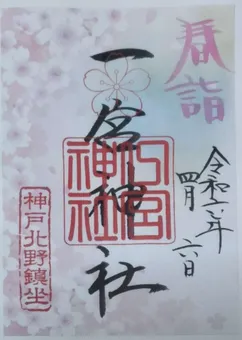 春詣
令和年
四月六日
一宮神社
一宮神社
神戸北野鎮坐